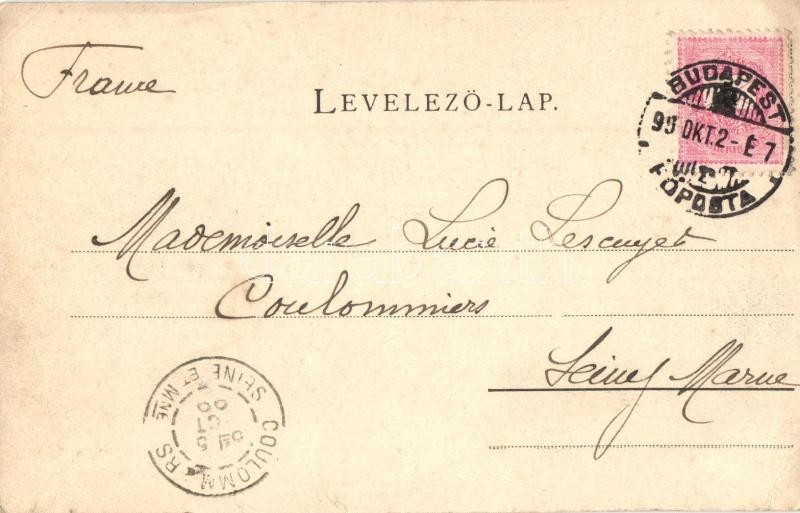 France
LEVELEZŐ-LAP.
BUDAPEST
99 OKT. 2 - É 7
FŐPOSTA
Mademoiselle Lucie Lescuyet
Coulommiers
Seine & Marne
COULOMMIERS
SEINE ET MNE